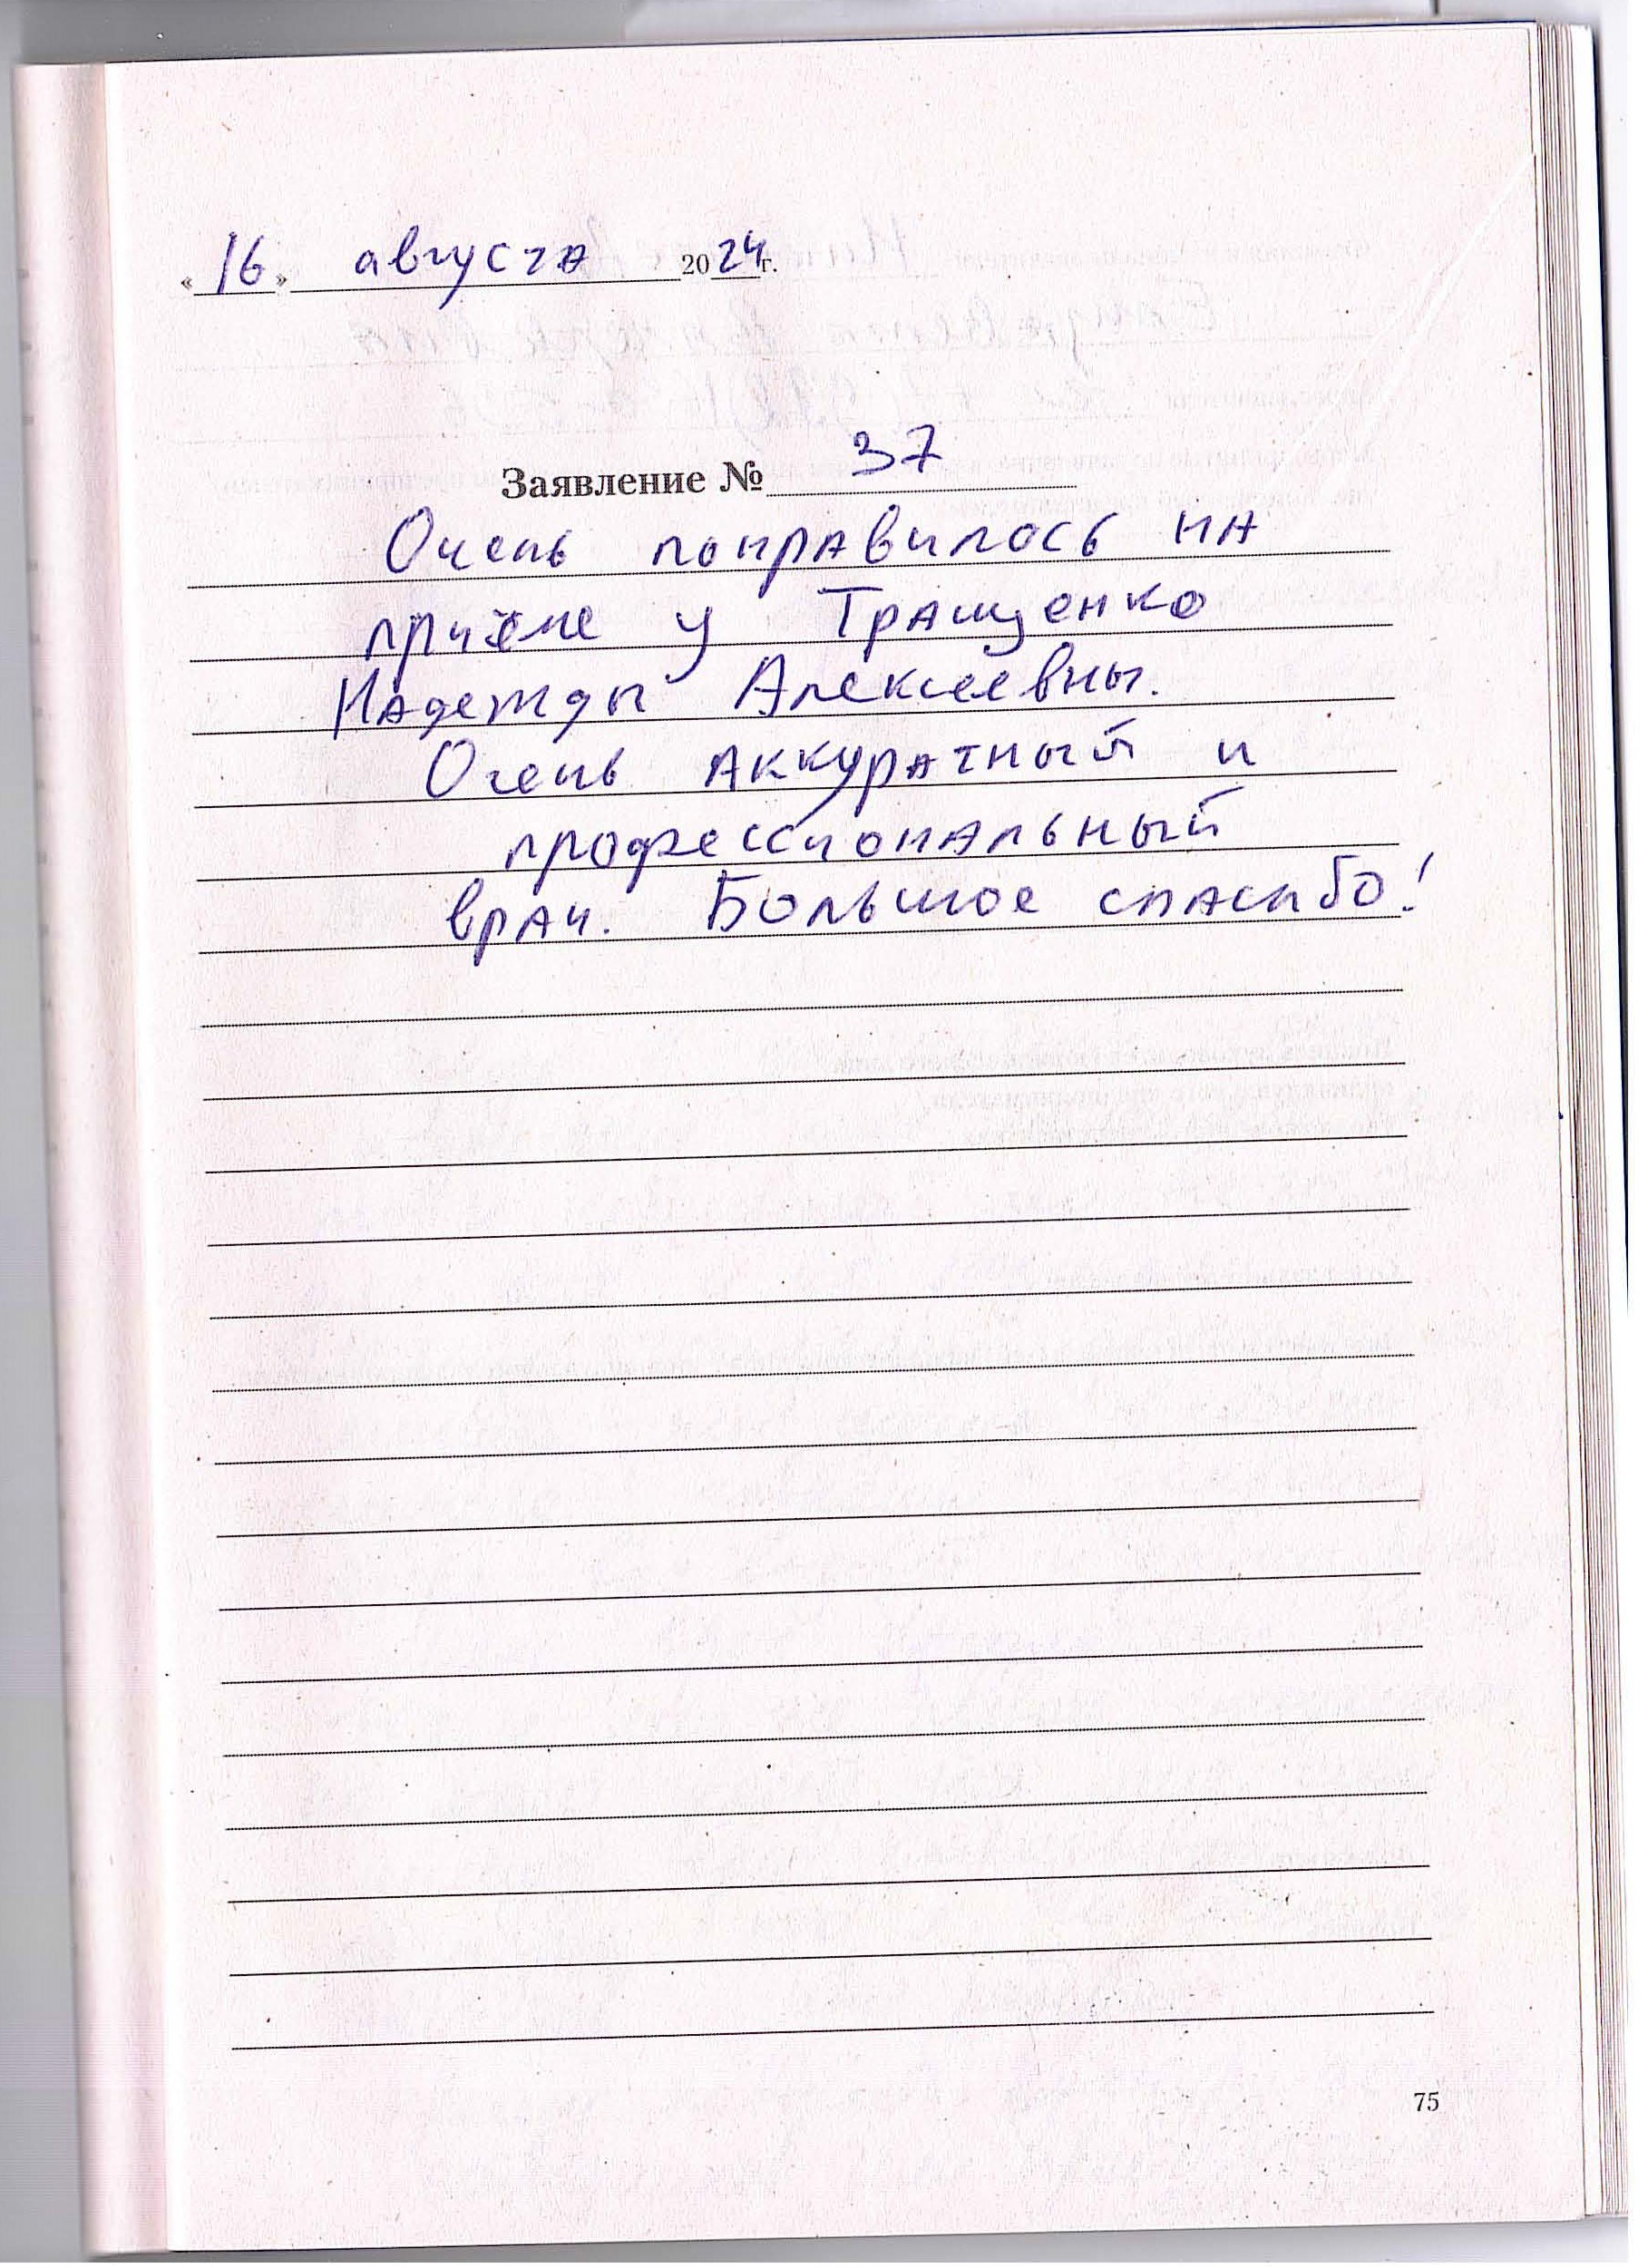 «16» августа 2024г.
Заявление № 37
Очень понравилось на
приёме у Тращенко
Надежды Алексеевны.
Очень аккуратный и
профессиональный
врач. Большое спасибо!
75